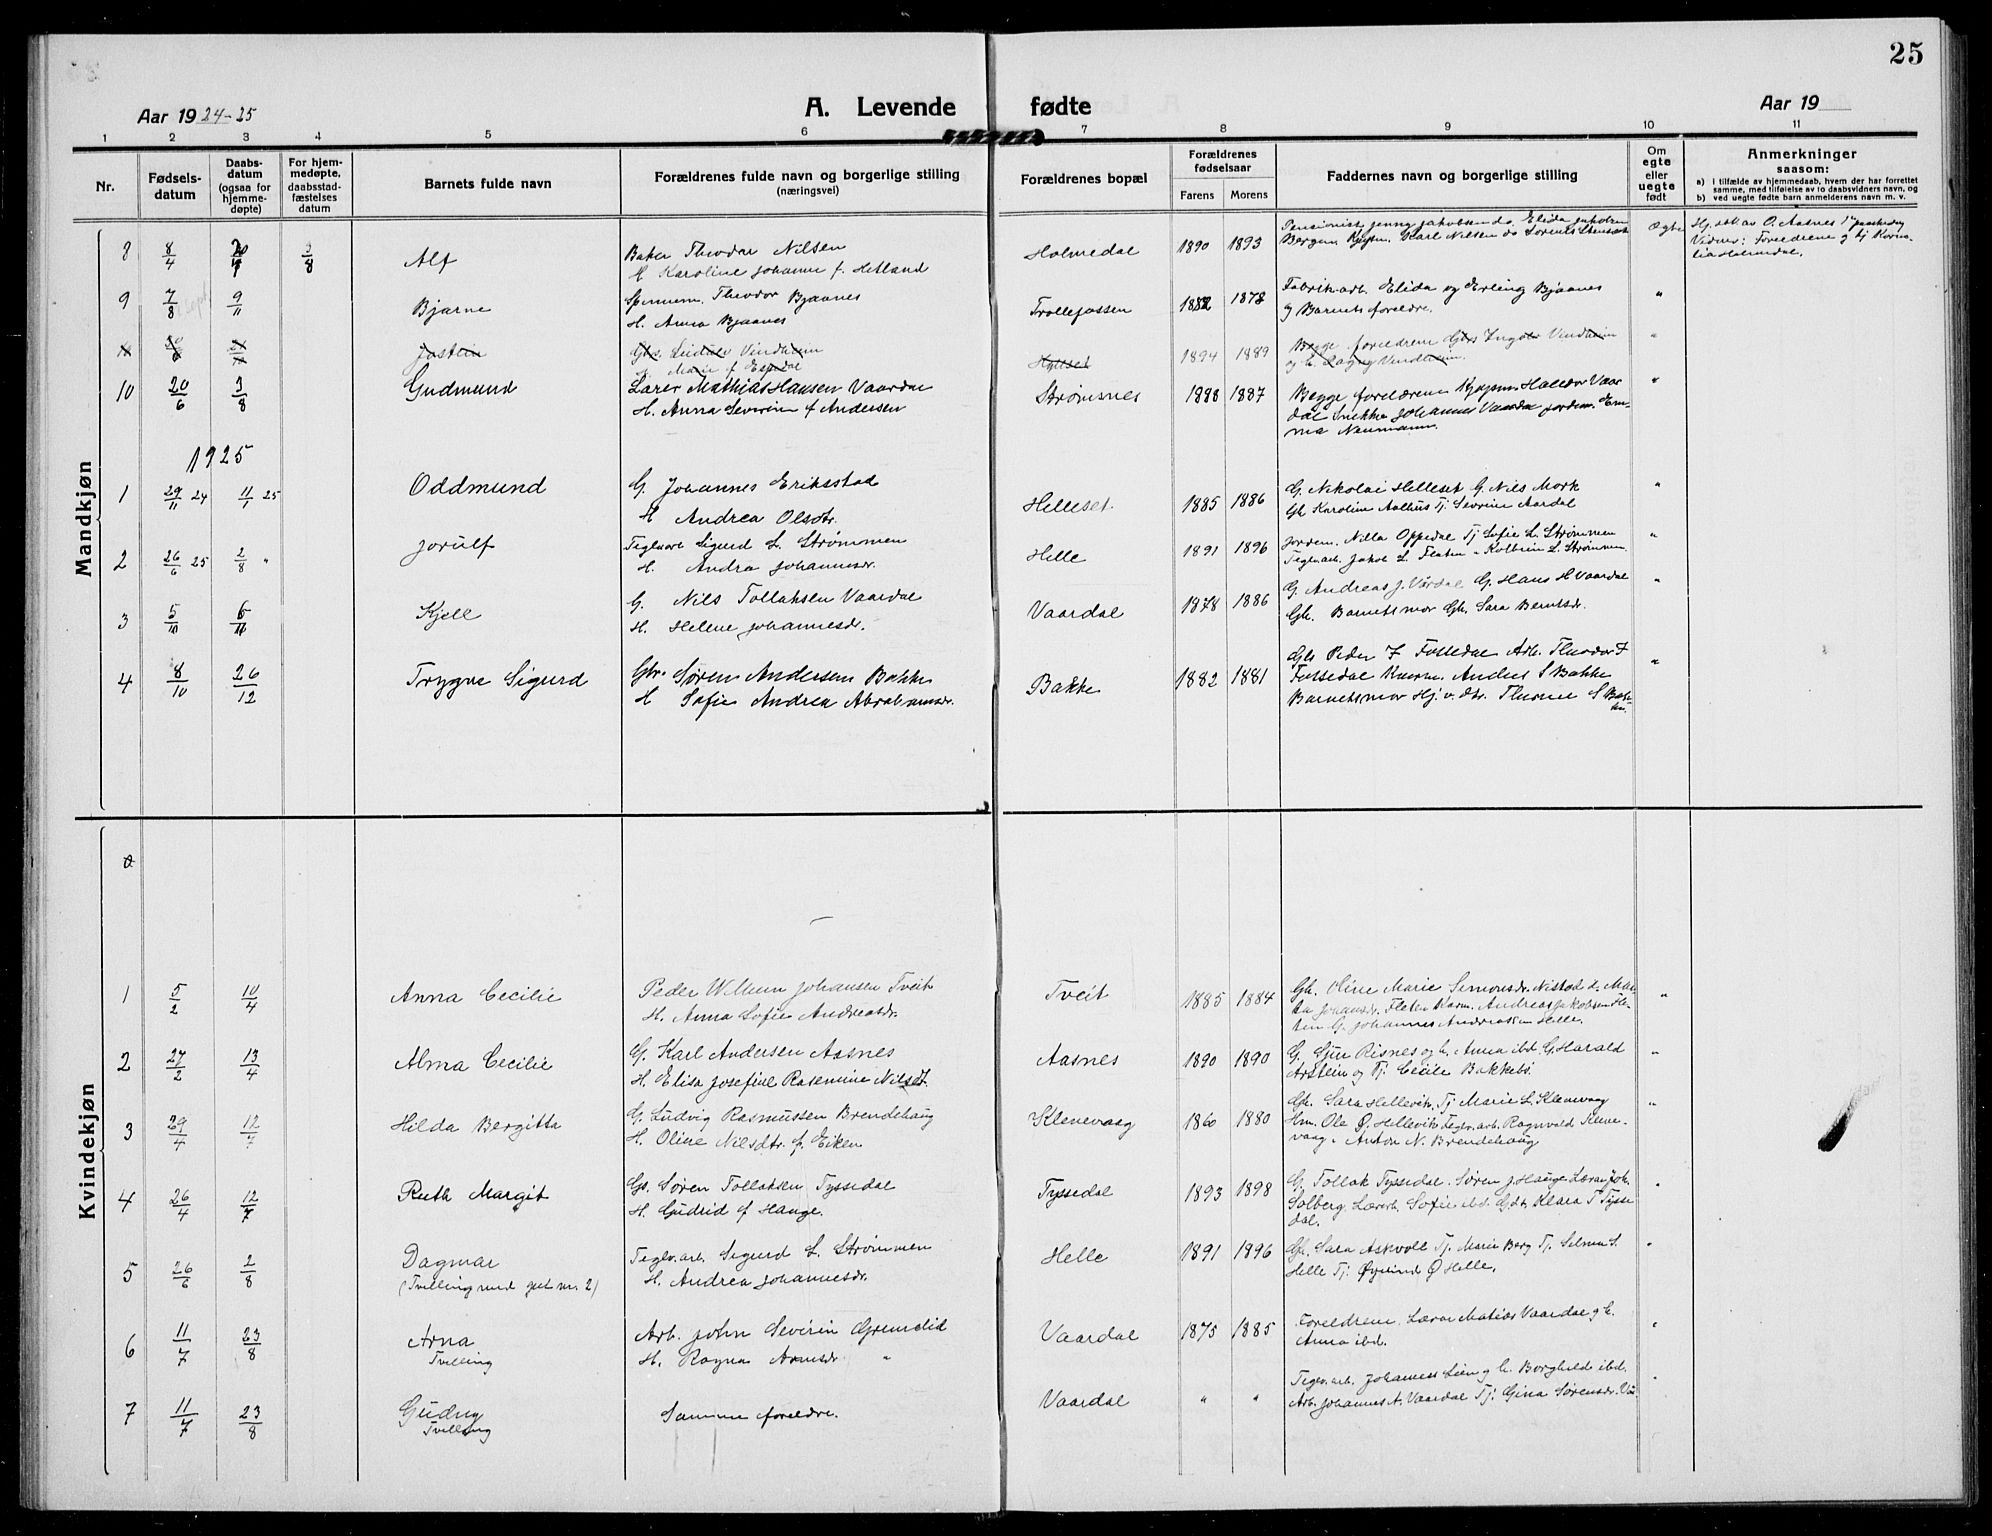 25
Aar 1924-25
A. Levende fødte
Aar 19
1 2 3 4 5 6 7 8 9 10 11
Nr.
Fødsels-
datum
Daabs-
datum
(ogsaa for
hjemme-
døpte)
For hjem-
medøpte,
daabsstad-
fæstelses
datum
Barnets fulde navn
Forældrenes fulde navn og borgerlige stilling
(næringsvei)
Forældrenes bopæl
Forældrenes
fødselsaar
Farens Morens
Faddernes navn og borgerlige stilling
Om
egte
eller
uegte
født
Anmerkninger
saasom:
a) i tilfælde av hjemmedaab, hvem der har forrettet
samme, med tilføielse av to daabsvidners navn, og
b) ved uegte fødte barn anmelderens navn m. v.
Mandkjøn
8 8/4 3/8 Alf
Baker Theodor Nilsen
H. Karoline Johanne f. Hetland
Holmedal 1890 1893
Pensionist Jenny Jakobsen do. Elida Jakobsen
Bergen Karl Nilsen do
Egte
Hj. døbt av O. Aasnes
Vidner: Foreldrene og hj
lia Holmedal.
9 7/8 9/11 Bjarne
Theodor Bjaanes
H. Anna Bjaanes
Trollefossen 1882 1878
Fabrikarb. Elida og Erling Bjaanes
og Barnets foreldre.
"
Jostein
Gbr. Leidulv Vindheim
H. Marie f Espedal
1894 1889
Begge foreldrene Gbr Ingolv Vindheim
og E. Lagny Vindheim.
"
10 20/6 3/8 Gudmund
Lærer Mathias Hansen Vaardal
H. Anna Severine f Andersen
Strømsnes 1888 1887
Begge foreldrene Kjøpm Halldor Vaar
dal Snekker Johannes Vaardal jordm. Em-
ma Neumann.
"
1925
1 29/11 24 11/1 25 Oddmund
G. Johannes Eriksstad
H Andrea Olsdtr.
Helleset. 1885 1886
G. Nikolai Helleset G. Nils Mork
Gk Karoline Aalhus Tj. Sevrine Aardal
"
2 26/6 25 2/8 " Jorulf
Teglverk Sigurd L. Strømmen
H. Andra Johannesdr.
Helle 1891 1896
Jordem. Nilla Oppedal Tj Sofie L. Strømmen
Teglv.arb. Jakob L. Flaten " Kolbein L. Strømmen
"
3 5/10 Kjell
G. Nils Tollaksen Vaardal
H. Helene Johannesdr.
Vaardal 1878 1886
G. Andreas J. Vårdal G. Hans H Vaardal
Gk. Barnets mor Gk. Sara Berntsdr.
"
4 8/10 26/12 Trygve Sigurd
Gbr. Søren Andersen Bakke
H Sofie Andrea Abrahamsdr.
Bakke 1882 1881
Gbr Peder Z Fossedal Arb. Theodor F
Fossedal Kaarm. Anders S Bakke
Barnets mor Hj. v. dtr. Thorine S Bak-
ke.
"
Kvindekjøn
0
1 5/2 10/4 Anna Cecilie
Peder Wilhelm Johansen Tveit
H. Anna Sofie Andreasdr.
Tveit 1885 1884
Gk. Oline Marie Simonsdr. Nistad d. Mar-
ta Johansdr. Fleten Kaarm. Andreas Jakobsen Fle-
ten G. Johannes Andreassen Helle.
"
2 27/2 13/4 Alma Cecilie
G. Karl Andersen Aasnes
H. Elisa Josefine Rasemine Nilsdt.
Aasnes 1890 1890
G. Gjur Risnes og h. Anna ibd. G. Harald
Arstein og Tj. Cecilie Bakkebø.
"
3 29/4 12/7 Hilda Bergitta
G. Ludvig Rasmussen Brendehaug
H. Oline Nilsdtr. f. Eiken
Klenevaag 1860 1880
Gk. Sara Hellevik, Tj Marie L. Klenevaag
Hm. Ole Ø. Hellevik Teglv. arb. Ragnvald Klene-
vaag " Anton N. Brendehaug
"
4 26/4 12/7 Ruth Margit
Gs. Søren Tollaksen Tyssedal
H. Gudrid f Hauge.
Tyssedal 1893 1898
G. Tollak Tyssedal. Søren J. Hauge Lærer Joh.
Solberg, Lærerh. Sofie ibd. Gdt. Klara T Tysse
dal.
"
5 26/6 2/8 Dagmar
(Tvilling med gut nr. 2)
Teglv. arb. Sigurd L. Strømmen
H. Andrea Johannesdr.
Helle 1891 1896
Gk. Sara Askvoll Tj. Marie Berg Tj. Selma S.
Helle Tj. Øyvind Ø Helle.
"
6 11/7 23/8 Arna
Tvilling
Arb. John Severin Grimelid
H. Ragna Arnesdr. "
Vaardal 1875 1885
Foreldrene, Lærer Matias Vaardal og h.
Anna ibd.
"
7 11/7 23/8 Gudny
Tvilling
Samme foreldre.
Vaardal " "
Teglv. arb. Johannes Lien og h. Borghild ibd.
Arb. Johannes A. Vaardal Tj: Gina Sørensdr.
"